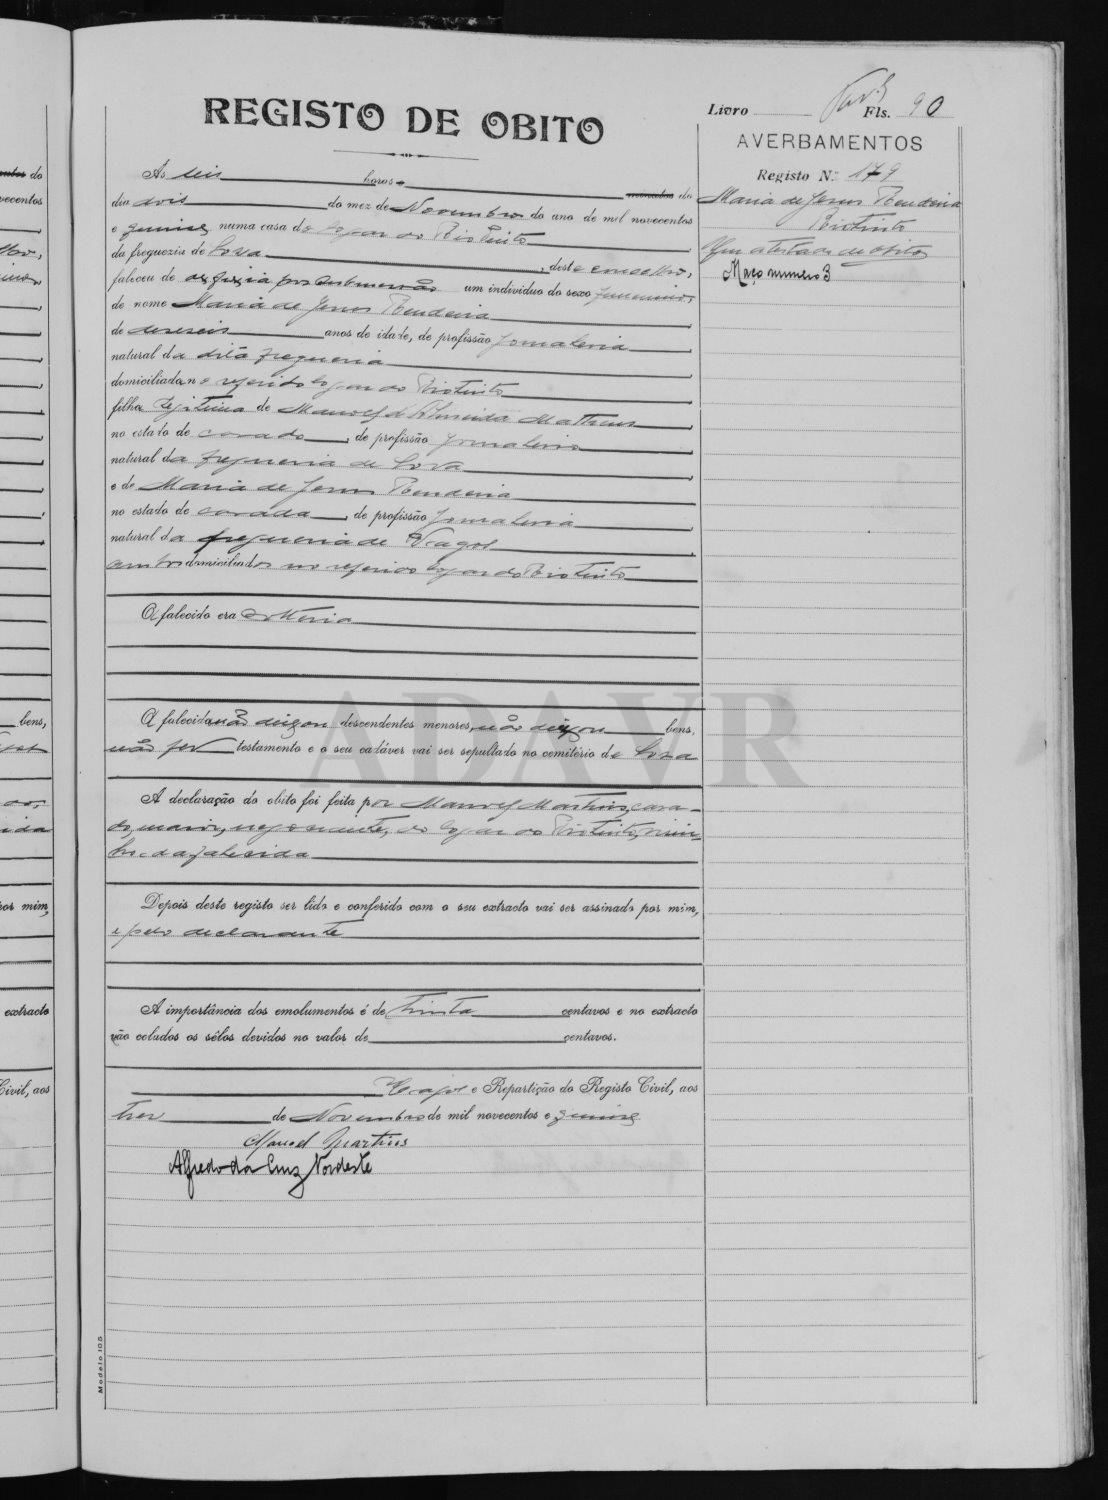 REGISTO DE OBITO
Livro Fls. 90
AVERBAMENTOS
Registo N.º 179
Maria de Jesus Rendeiria
Riotinto
Um atestado de obito
Maço numero 3
As seis horas minutos do
dia dois do mez de Novembro do ano de mil novecentos
e quinze, numa casa do logar do Riotinto
da freguezia de Sosa, deste concelho,
faleceu de asfixia por submersão um individuo do sexo femenino,
de nome Maria de Jesus Rendeiria,
de deseseis anos de idade, de profissão jornaleira,
natural da dita freguesia
domiciliada no referido logar do Riotinto
filha legitima de Manoel d'Almeida Matheus,
no estado de casado, de profissão jornaleiro,
natural da freguesia de Sosa
e de Maria de Jesus Rendeiria
no estado de casada, de profissão jornaleira,
natural da freguesia de Vagos
ambos domiciliados no referido logar do Riotinto
A falecida era solteira
A falecida não deixou descendentes menores, não deixou bens,
não fez testamento e o seu cadáver vai ser sepultado no cemitério de Sosa
A declaração do obito foi feita por Manoel Martins, casa-
do, maior, negociante, do logar do Riotinto, visin-
ho da falecida
Depois deste registo ser lido e conferido com o seu extracto vai ser assinado por mim,
e pelo declarante
A importância dos emolumentos é de trinta centavos e no extracto
vão colados os sêlos devidos no valor de centavos.
Vagos e Repartição do Registo Civil, aos
tres de Novembro de mil novecentos e quinze
Manoel Martins
Alfredo da Cruz Nordeste
Modelo 105
ADAVR